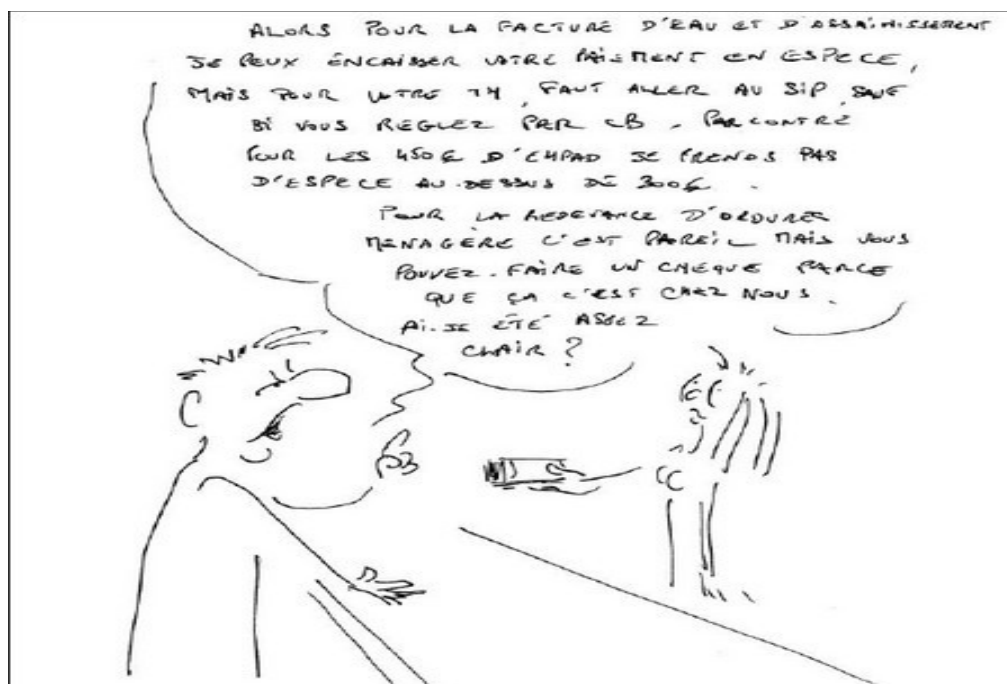 ALORS POUR LA FACTURE D'EAU ET D'ASSAINISSEMENT
JE PEUX ENCAISSER VOTRE PAIEMENT EN ESPECE,
MAIS POUR VOTRE TH, FAUT ALLER AU SIP, SAUF
SI VOUS REGLEZ PAR CB. PAR CONTRE
POUR LES 450€ D'EHPAD JE PRENDS PAS
D'ESPECE AU-DESSUS DE 300€.
POUR LA REDEVANCE D'ORDURES
MENAGÈRE C'EST PAREIL MAIS VOUS
POUVEZ FAIRE UN CHEQUE PARCE
QUE ÇA C'EST CHEZ NOUS.
AI-JE ÉTÉ ASSEZ
CLAIR ?